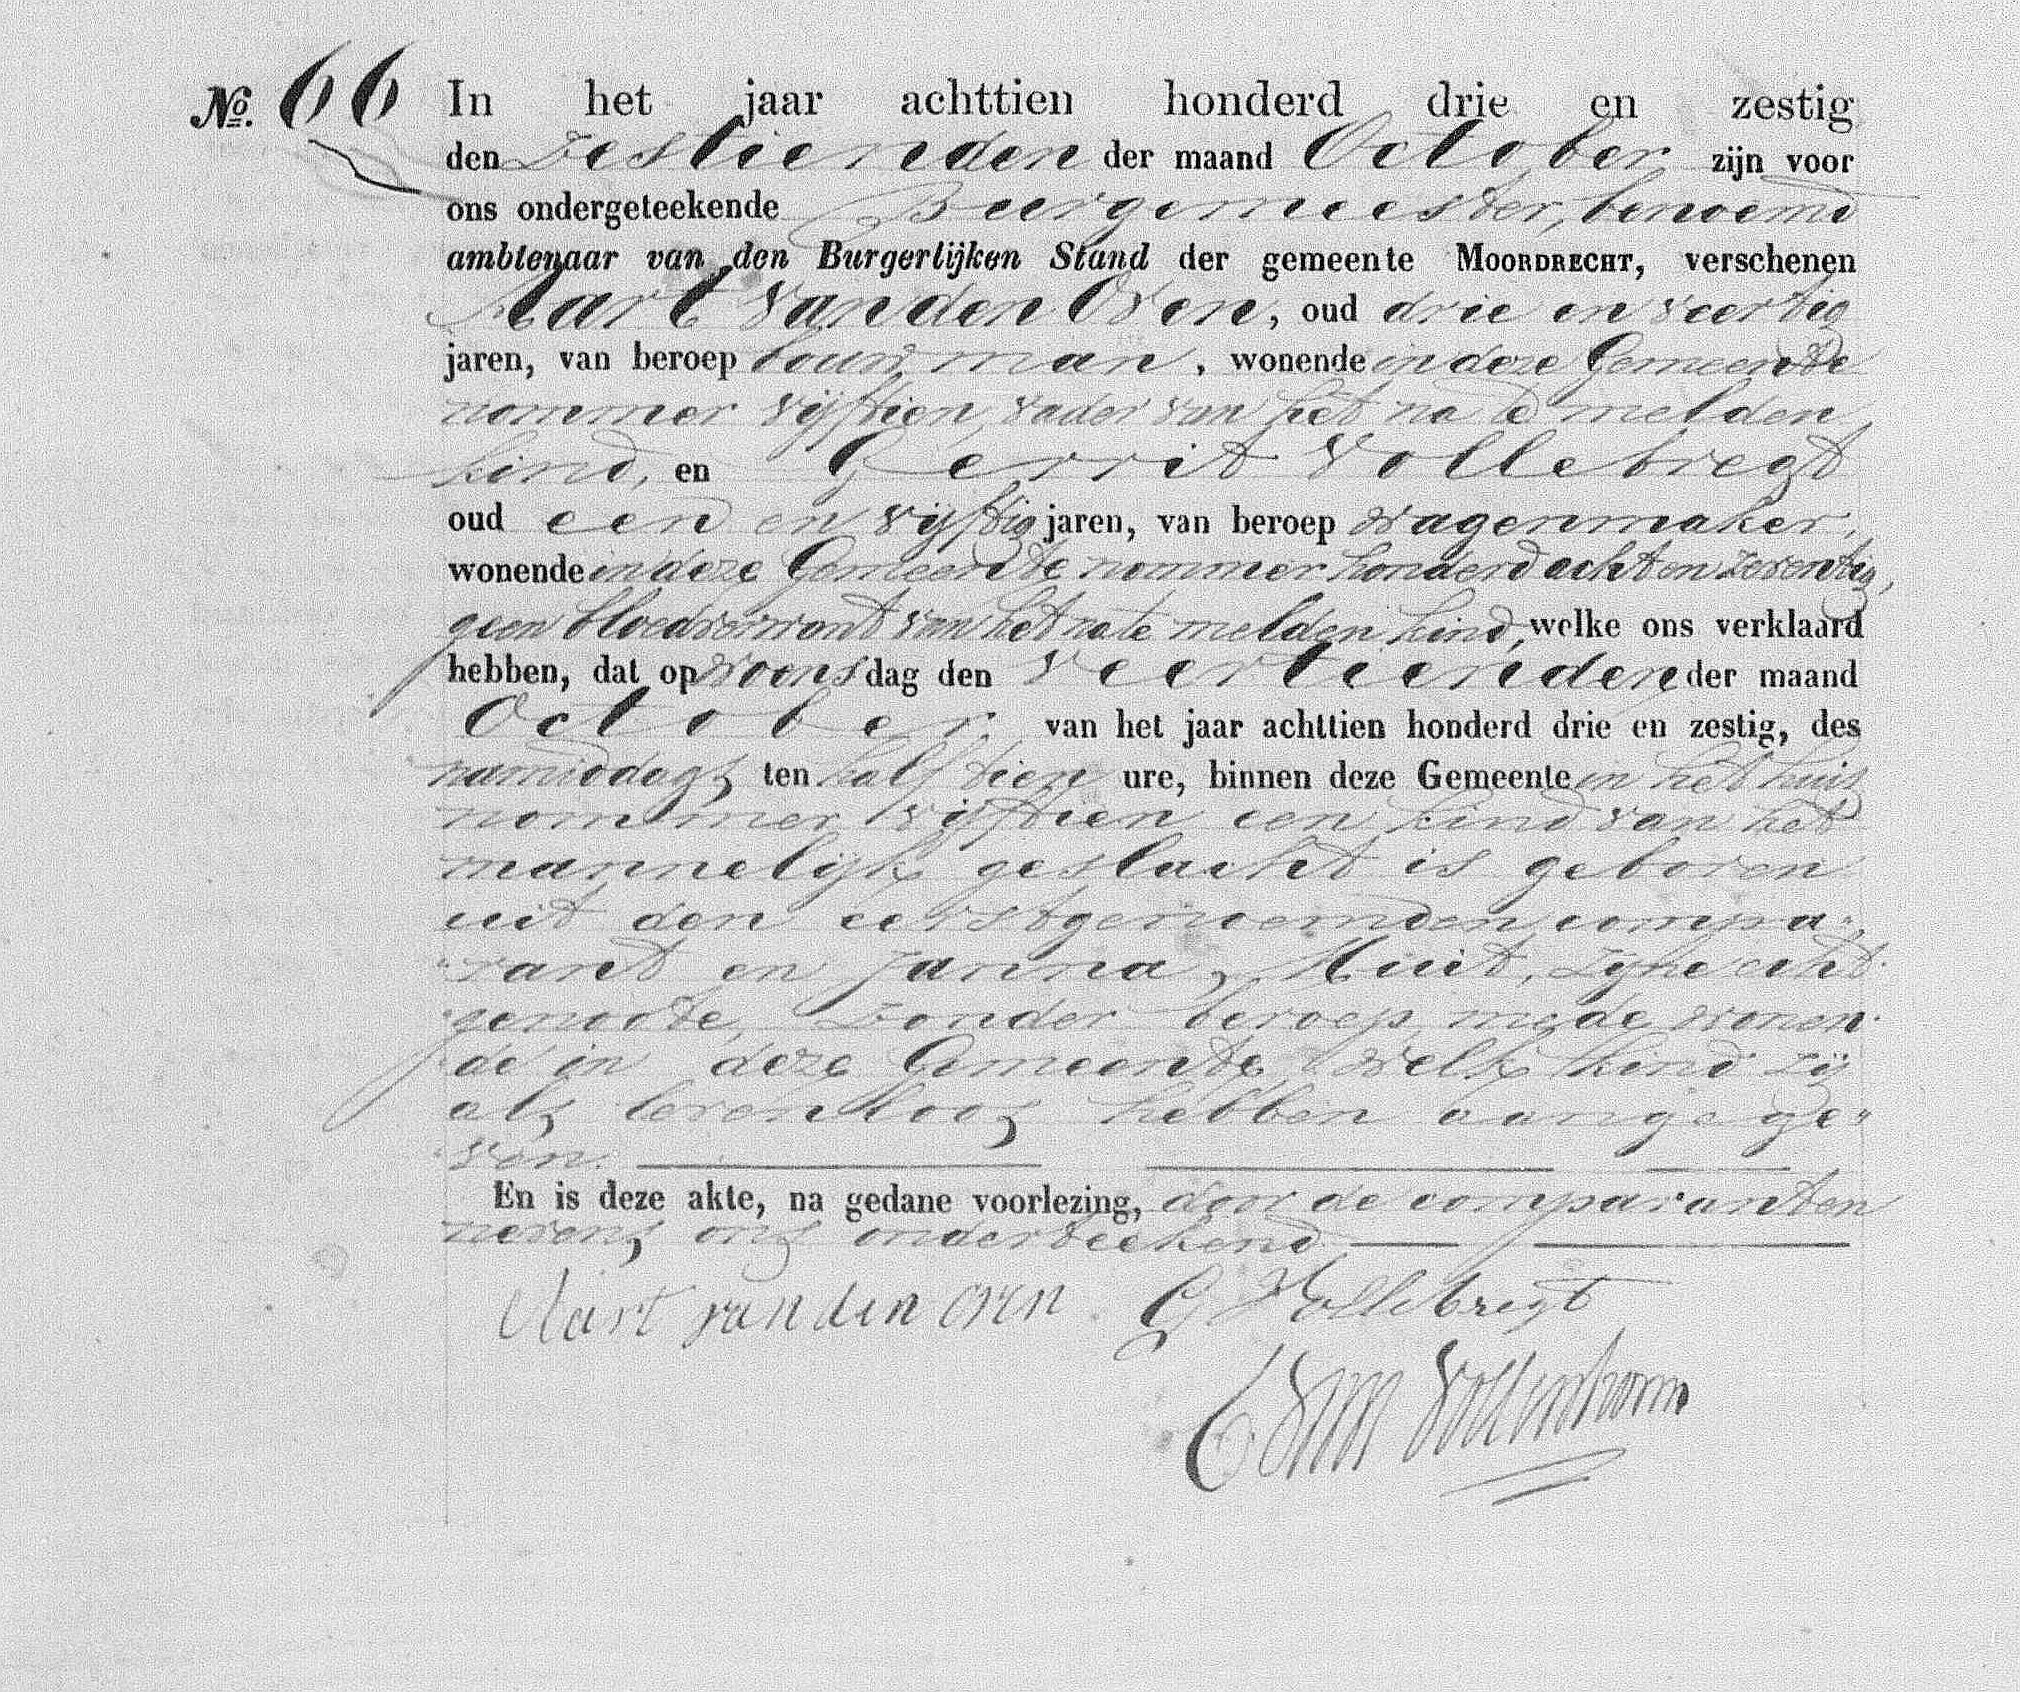 No. 66 In het jaar achttien honderd drie en zestig
den zestienden der maand October zijn voor
ons ondergeteekende Burgemeester, benoemd
ambtenaar van den Burgerlijken Stand der gemeente MOORDRECHT, verschenen
Aart van den Oven, oud drie en veertig
jaren, van beroep bouwman, wonende in deze Gemeente
nommer vijftien, vader van het na te melden
kind, en Gerrit Vollebregt
oud een en vijftig jaren, van beroep wagenmaker,
wonende in deze Gemeente nommer honderd acht en zeventig,
geen bloedverwant van het na te melden kind, welke ons verklaard
hebben, dat op woensdag den veertienden der maand
October van het jaar achttien honderd drie en zestig, des
namiddags ten half tien ure, binnen deze Gemeente in het huis
nommer vijftien een kind van het
mannelijk geslacht is geboren
uit den eerstgenoemden compa-
rant en Janna Kuit, zijne echt-
genoote, zonder beroep, mede wonen-
de in deze Gemeente, welk kind zij
als levenloos hebben aangege-
ven.
En is deze akte, na gedane voorlezing, door de comparanten
nevens ons onderteekend
Aart van den oven G Vollebregt